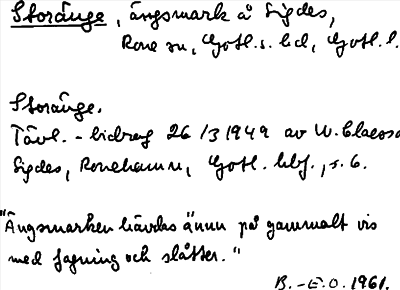 Storänge, ängsmark å Sigdes,
Rone sn, Gotl. s. hd, Gotl. l.
Storänge.
Tävl. - bidrag 26/3 1949 av W. Claesso
Sigdes, Ronehamn, Gotl. hbf., s. 6.
"Ängsmarken hävdas ännu på gammalt vis
med fagning och slåtter."
B.-E.O. 1961.